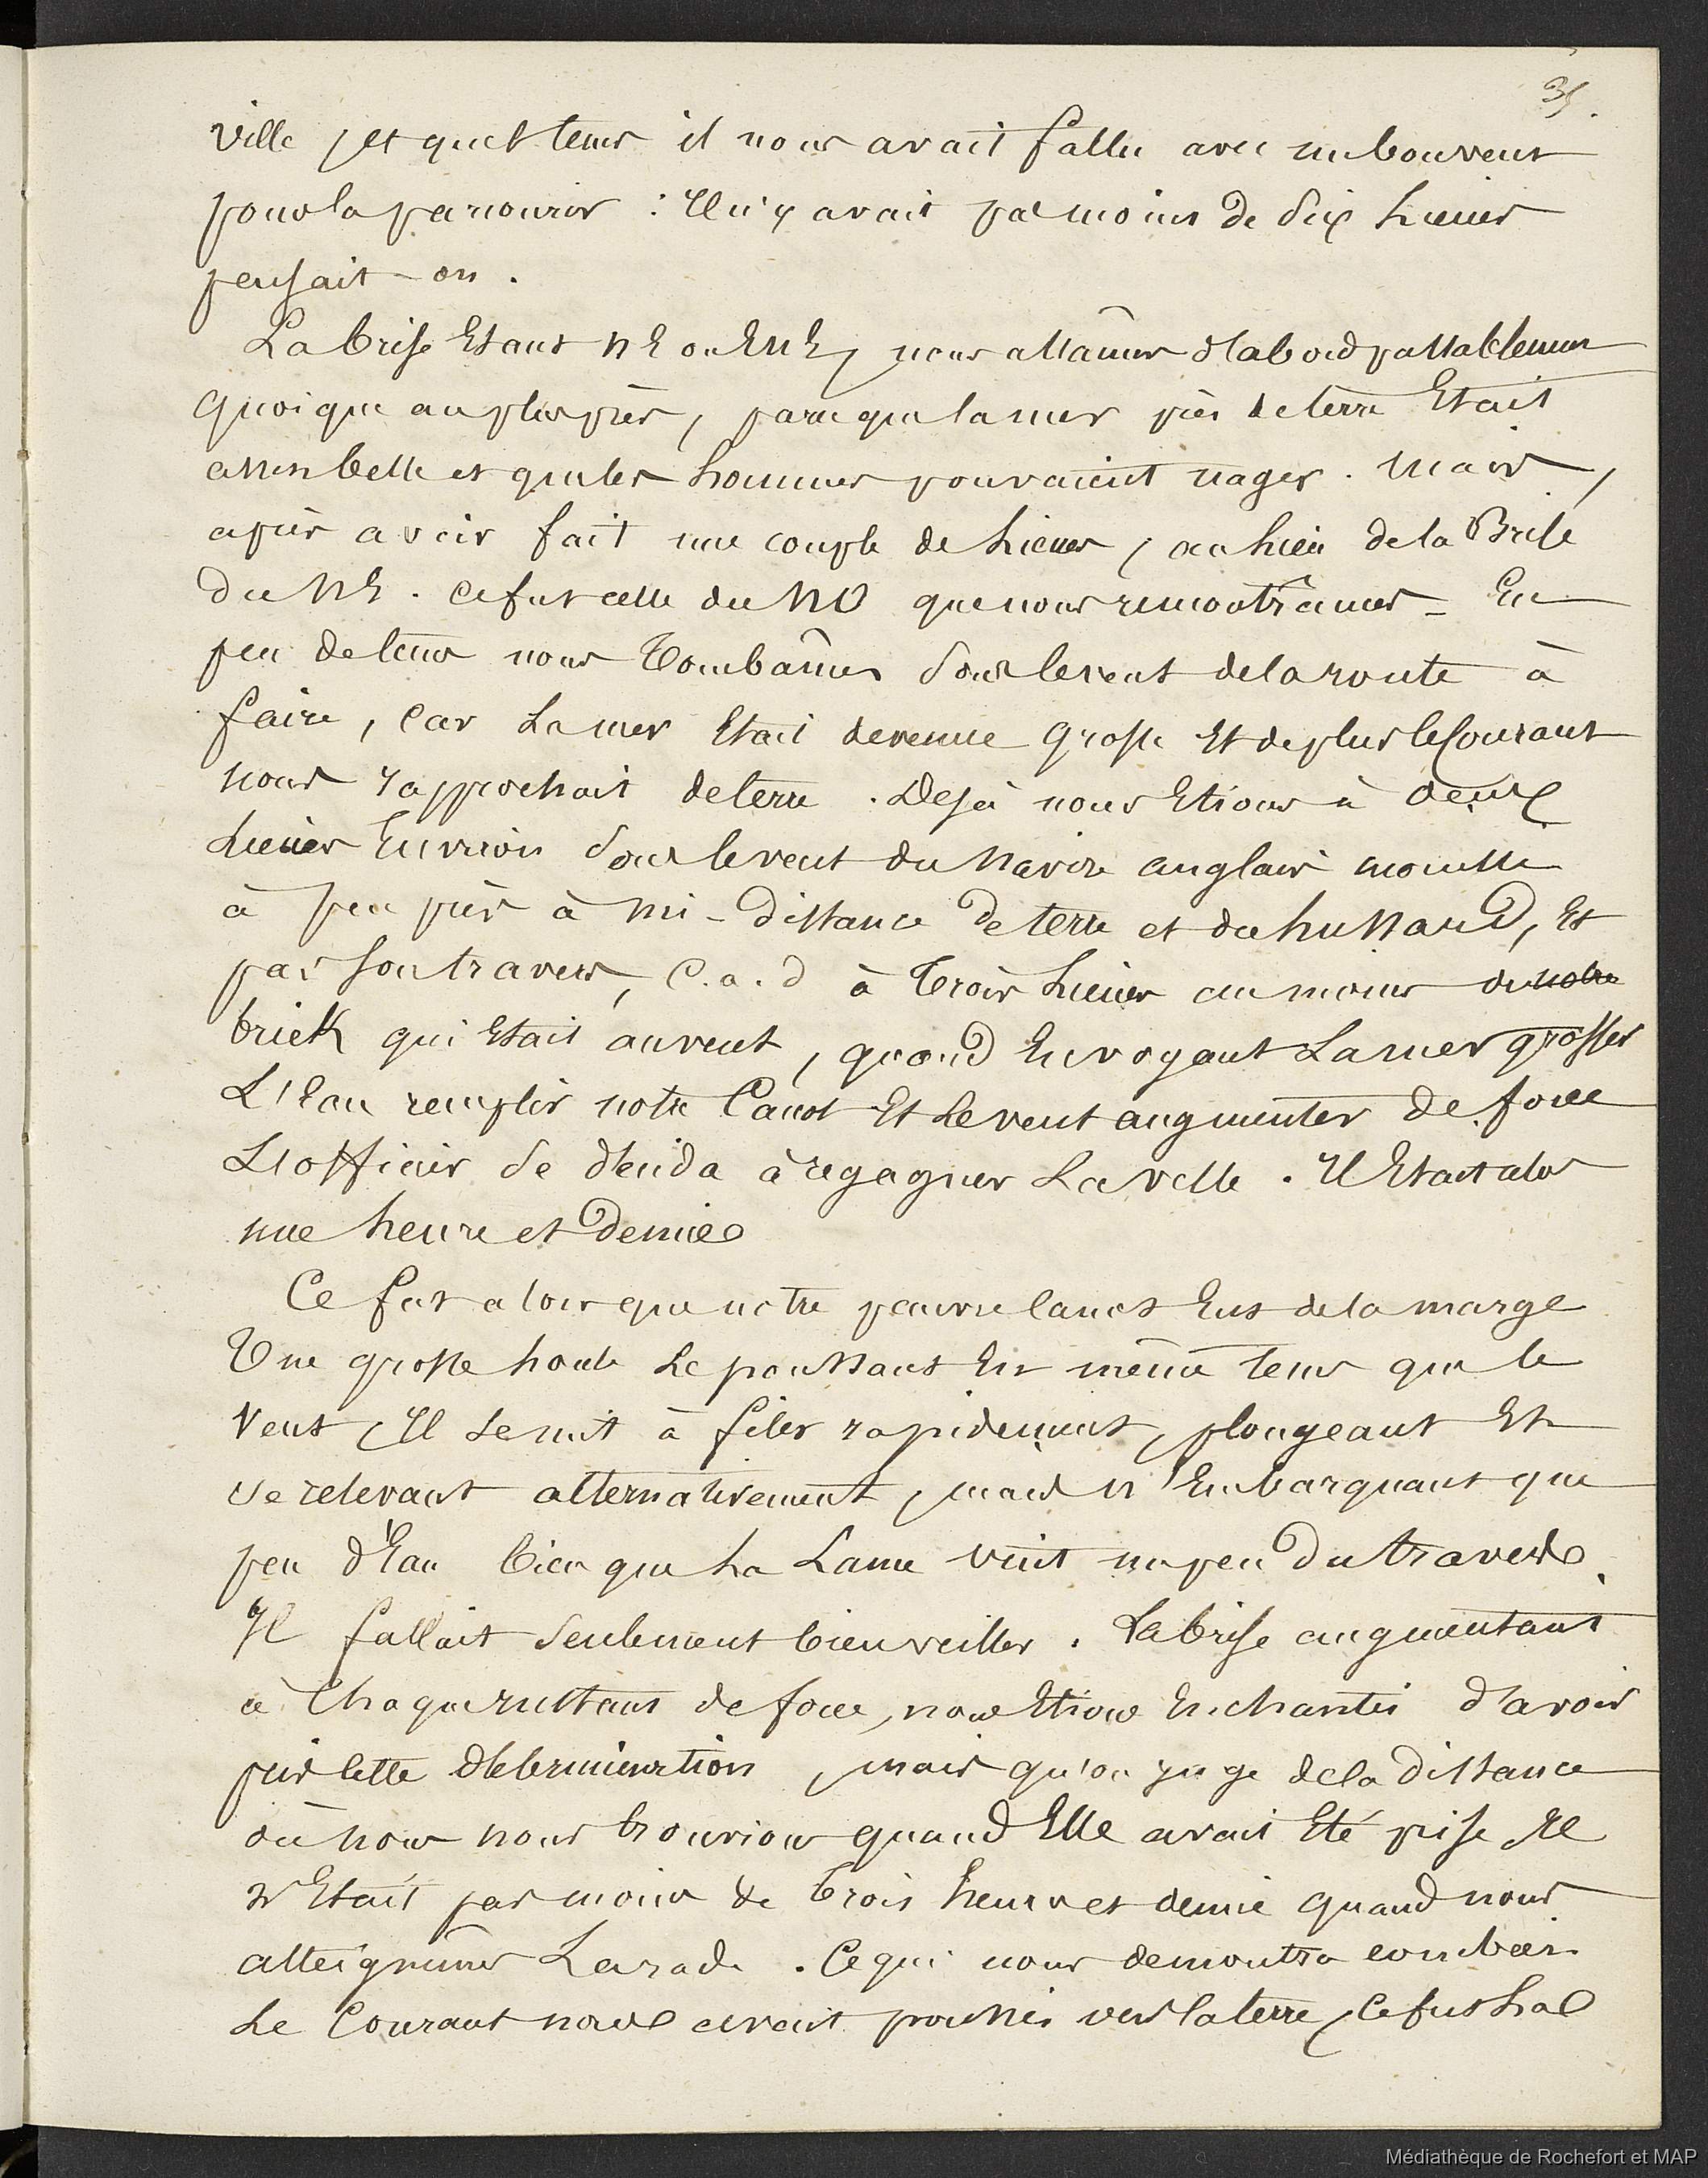 35.
ville, et quel tems il nous avait fallu avec un bon vent
pour la parcourir : Il n'y avait pas moins de dix Lieues
pensait-on.
La brise Etant NE ou ENE, nous allâmes d'abord passablement
quoique au plus près, parce que la mer près de terre Etait
assez belle et que les hommes pouvaient nager. Mais,
après avoir fait une couple de Lieues, au lieu de la Brise
du NE. ce fut celle du NO que nous rencontrâmes - En
peu de tems nous tombâmes sous le vent de la route à
faire, car La mer Etait devenue grosse Et de plus le Courant
nous rapprochait de terre. Dejà nous Etions à deux
Lieues Environ sous le vent du Navire anglais mouillé
à peu près à mi-distance de terre et du hussard, Et
par son travers, c.a.d à trois Lieues au moins de notre
brick qui Etait au vent, quand En voyant La mer grosser
L'Eau remplir notre Canot Et Le vent augmenter de force
L'officier se décida à regagner La ville. Il Etait alors
une heure et demie
Ce fut alors que notre pauvre Canot Eut de la marge
Une grosse houle Le poussant En même tems que le
Vent, Il se mit à filer rapidement, plongeant Et
se relevant alternativement, mais n'Embarquant que
peu d'Eau bien que La Lame vint un peu du travers.
Il fallait seulement bien veiller. La brise augmentant
à Chaque instant de force, nous Etions Enchantés d'avoir
pris Cette détermination, mais qu'on juge de la distance
où nous nous trouvions quand Elle avait Eté prise Il
n'Etait pas moins de trois heures et demie quand nous
atteignîmes La rade. Ce qui nous demontra combien
Le Courant nous avait poussés vers la terre, Ce fut La
Médiathèque de Rochefort et MAP